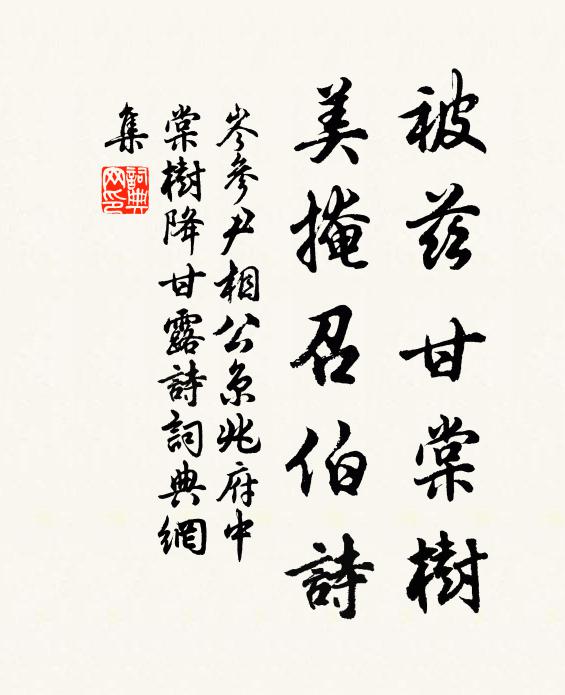 被茲甘棠樹
美掩召伯詩
岑參尹相公京兆府中
棠樹降甘露詩詞典網
集
詞典
网印